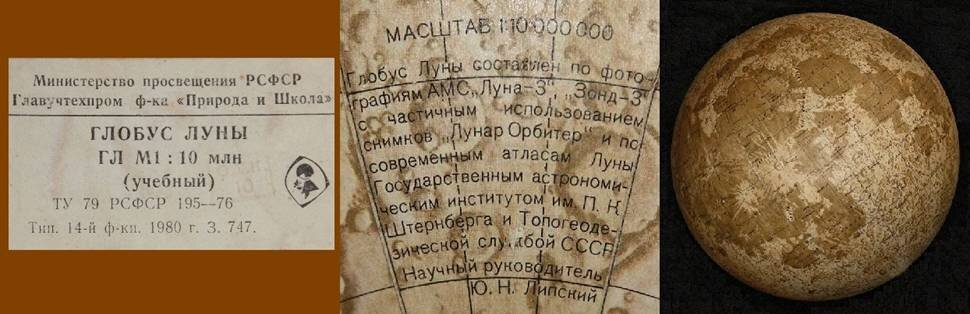 Министерство просвещения РСФСР
Главучтехпром ф-ка «Природа и Школа»
ГЛОБУС ЛУНЫ
ГЛ М1 : 10 млн
(учебный)
ТУ 79 РСФСР 195—76
Тип. 14-й ф-ки. 1980 г. З. 747.
МАСШТАБ 1:10 000 000
Глобус Луны составлен по фото-
графиям АМС „Луна-3", „Зонд-3"
с частичным использованием
снимков „Лунар Орбитер" и по
современным атласам Луны
Государственным астрономи-
ческим институтом им. П. К.
Штернберга и Топогеоде-
зической службой СССР
Научный руководитель
Ю. Н. Липский